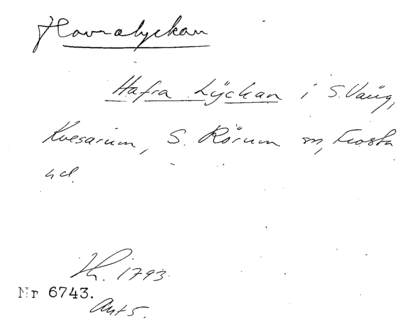 Havralyckan
Hafra Lÿckan i S. Vång,
Kvesarum, S. Rörum sn, Frosta
hd.
H. 1793.
Nr 6743.
Ant 5.